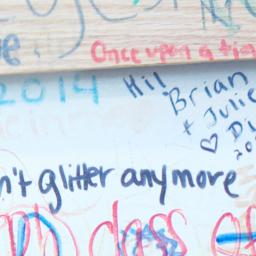 Once upon a tim
2014
Hi!
Brian
+ Julie
♡ Di
20
n't glitter anymore
class of